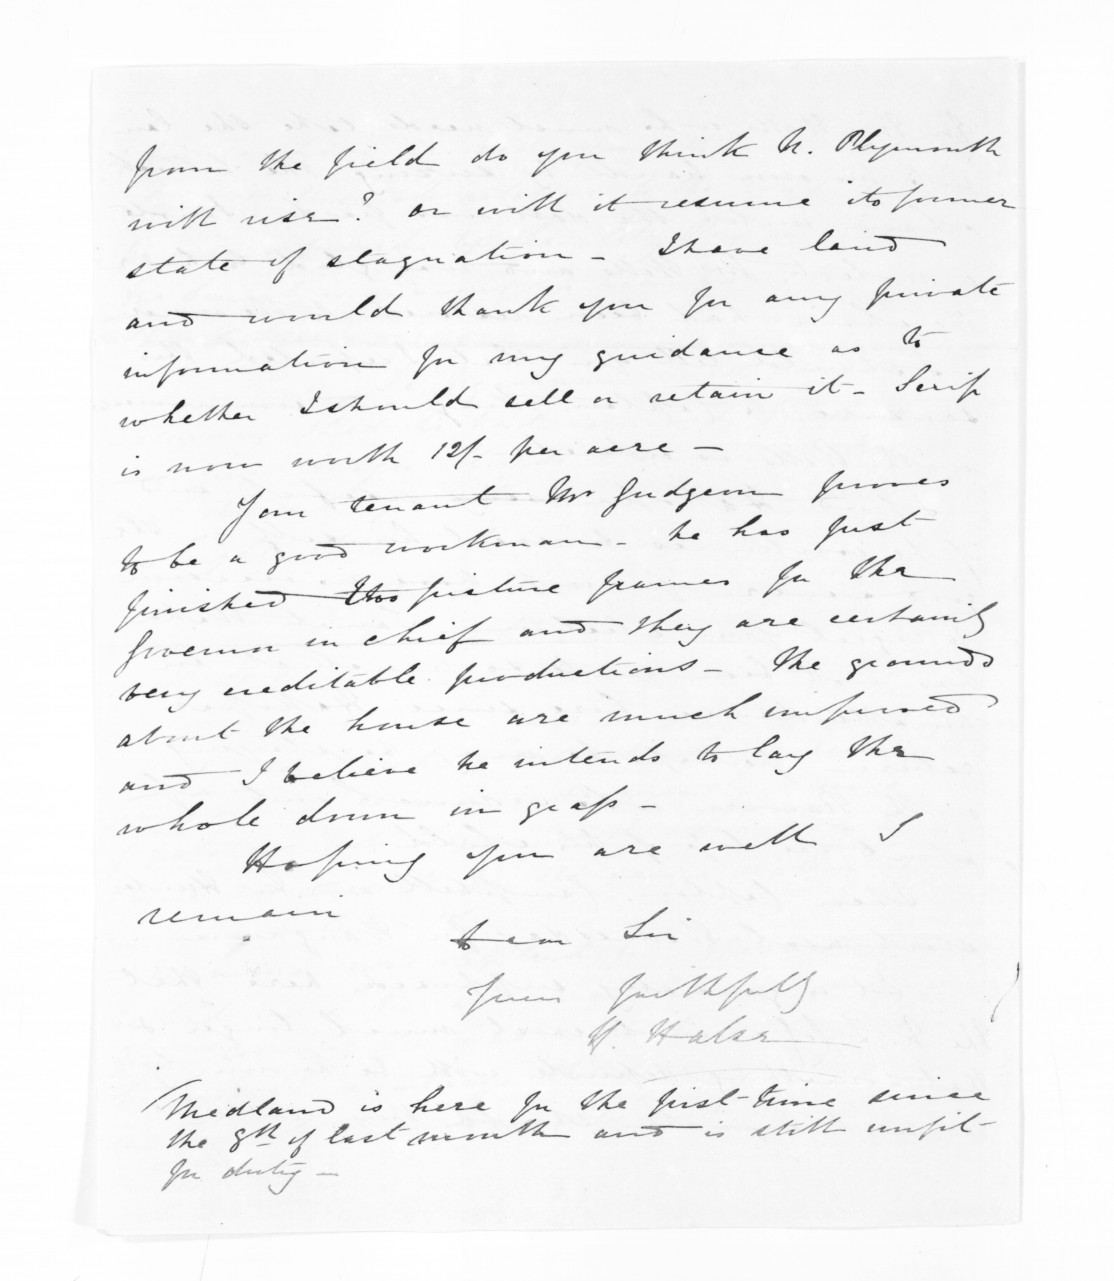 from the field do you think N. Plymouth
will rise? or will it resume its former
state of stagnation - I have land
and would thank you for any private
information for my guidance as to
whether I should sell or retain it - Scrip
is now worth 12/- per acre -
Your tenant Mr Gudgeon proves
to be a good workman - he has just
finished the picture frames for the
Governor in chief and they are certainly
very creditable productions - The grounds
about the house are much improved
and I believe he intends to lay the
whole down in grass -
Hoping you are well I
remain
Dear Sir
Yours faithfully
H. Halse
Midland is here for the first time since
the 8th of last month and is still unfit
for duty -